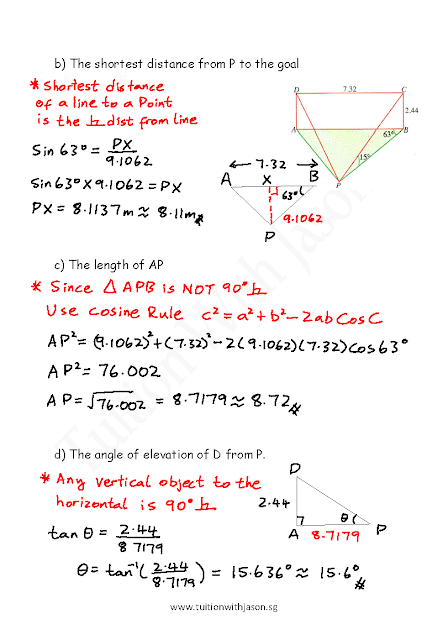 b) The shortest distance from P to the goal
* Shortest distance
of a line to a Point
is the ⊥ dist from line
D 7.32 C
2.44
A 63° B
15°
P
Sin 63° = PX / 9.1062
Sin 63° X 9.1062 = PX
PX = 8.1137m ≈ 8.11m
7.32
A X B
63°
9.1062
P
c) The length of AP
* Since △ APB is NOT 90° ⊥
Use Cosine Rule c² = a² + b² - 2ab Cos C
AP² = (9.1062)² + (7.32)² - 2(9.1062)(7.32) Cos 63°
AP² = 76.002
AP = √76.002 = 8.7179 ≈ 8.72
d) The angle of elevation of D from P.
* Any vertical object to the
horizontal is 90° ⊥
D
2.44
θ
A 8.7179 P
tan θ = 2.44 / 8.7179
θ = tan⁻¹(2.44 / 8.7179) = 15.636° ≈ 15.6°
Tuition with Jason
www.tuitionwithjason.sg